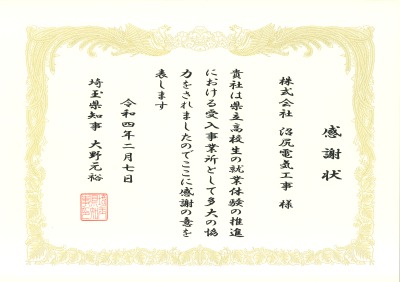 感謝状
株式会社 沼尻電気工事 様
貴社は県立高校生の就業体験の推進
における受入事業所として多大の協
力をされましたのでここに感謝の意を
表します
令和四年二月七日
埼玉県知事 大野元裕